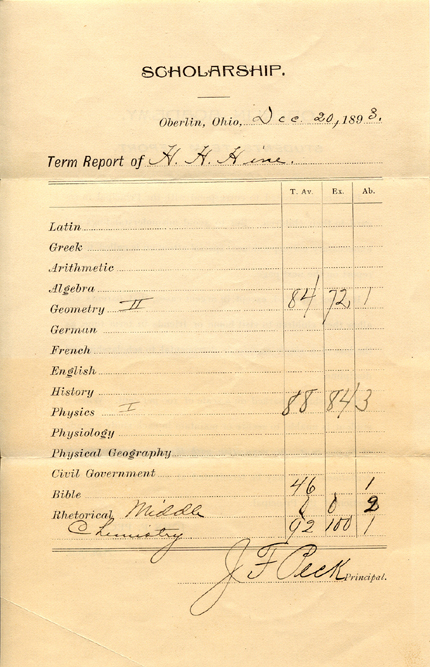 SCHOLARSHIP.
Oberlin, Ohio, Dec. 20, 1893.
Term Report of H. H. Hine.
T. Av. Ex. Ab.
Latin
Greek
Arithmetic
Algebra
Geometry II 84 72 1
German
French
English
History
Physics I 88 84 3
Physiology
Physical Geography
Civil Government
Bible 46 1
Rhetorical Middle 0 2
Chemistry 92 100 1
J F Peck Principal.